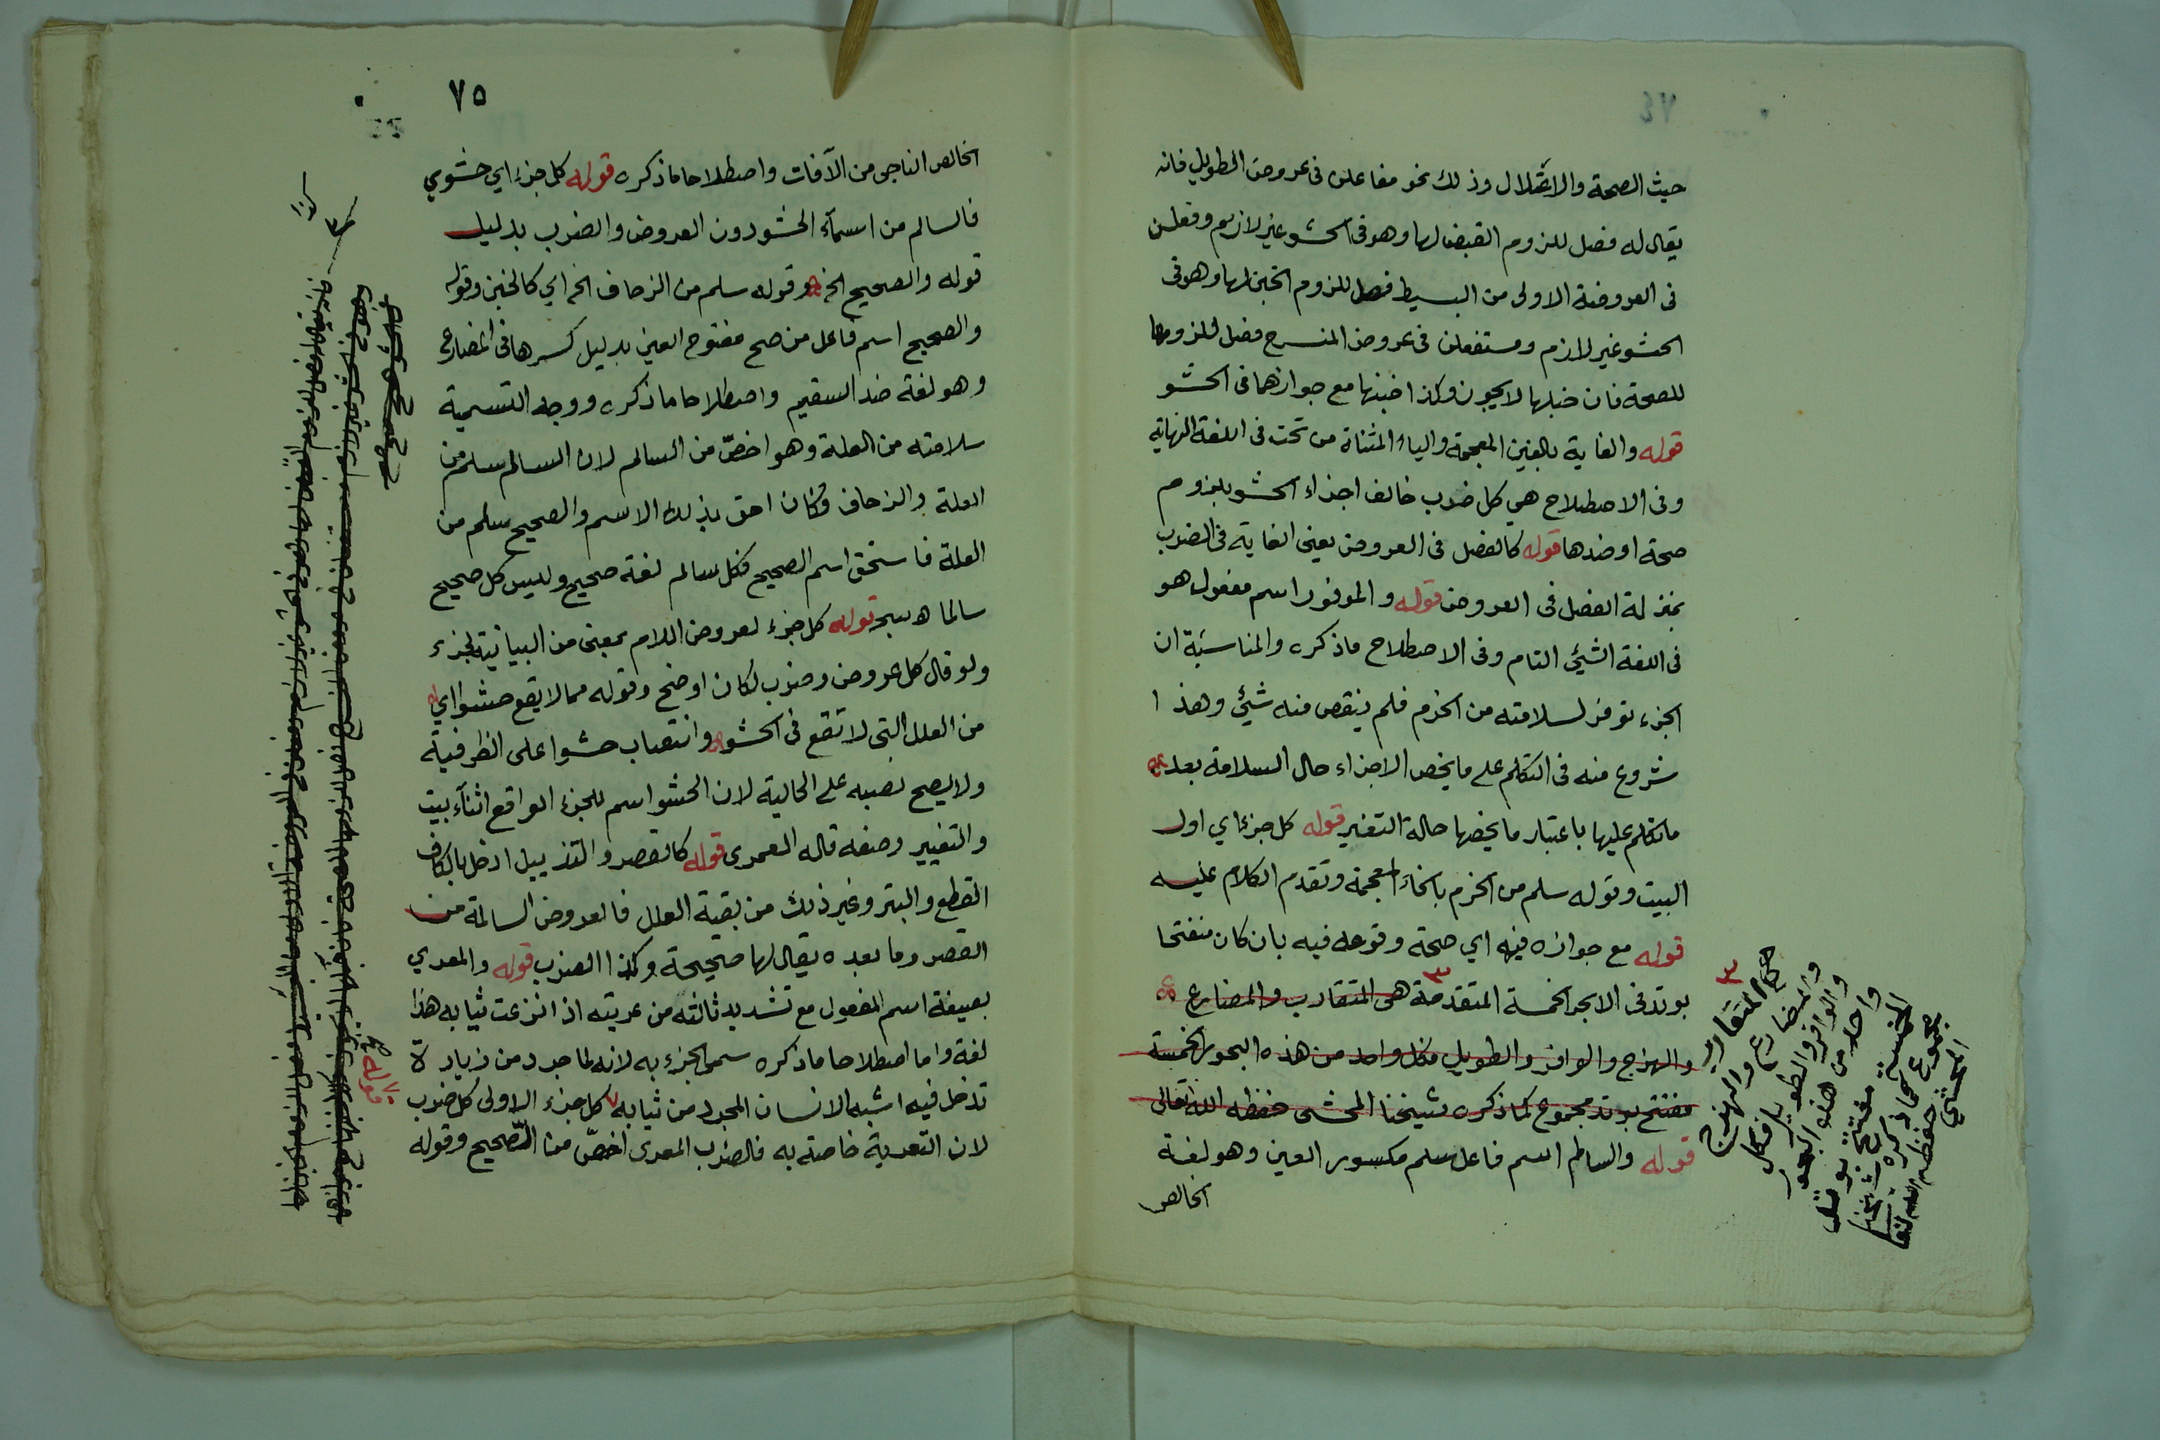 ٧٤
حيث الصحة والاعتلال وذلك نحو مفاعلن فى عروض الطويل فانه
يقال له فصل للزوم القبض لها وهو فى الحشو غير لازم وفعلن
فى العروضة الاولى من البسيط فصل للزوم الخبن لها وهو فى
الحشو غير لازم ومستفعلن فى عروض المنسرح فصل للزومها
للصحة فان خبلها لا يجوز وكذا خبنها مع جوازهما فى الحشو
قوله والغاية بالغين المعجمة والياء المثناة من تحت فى اللغة النهاية
وفى الاصطلاح هي كل ضرب خالف اجزاء الحشو بلزوم
صحة او ضدها قوله كالفصل فى العروض يعنى الغاية فى الضرب
بمنزلة الفصل فى العروض قوله والموفور اسم مفعول هو
فى اللغة الشيئ التام وفى الاصطلاح ماذكره والمناسبة ان
الجزء توفر لسلامته من الخرم فلم ينقص منه شيئ وهذا
شروع منه فى التكلم على ما يخص الاجزاء حال السلامة بعد
ما تكلم عليها باعتبار ما يخصها حالة التغير قوله كل جزء اي اول
البيت وقوله سلم من الخرم بالخاء المعجمة وتقدم الكلام عليه
قوله مع جوازه فيه اي صحة وقوعه فيه بان كان مفتتحا
بوتد فى الابحر الخمسة المتقدمة هى المتقارب والمضارع
والهزج والوافر والطويل فكل واحد من هذه البحور الخمسة
مفتتح بوتد مجموع كما ذكره شيخنا المحشى حفظه الله تعالى
قوله والسالم اسم فاعل سلم مكسور العين وهو لغة
الخالص
٣
هى المتقارب
والمضارع والهزج
والوافر والطويل فكل
واحد من هذه البحور
الخمسة مفتتح بوتد
مجموع كما ذكره شيخنا
المحشي حفظه الله تعا
٧٥
الخالص الناجى من الآفات واصطلاحا ماذكره قوله كل جزء اي حشوي
فالسالم من اسمآء الحشو دون العروض والضرب بدليل
قوله والصحيح الخ وقوله سلم من الزحاف الخ اي كالخبن وقوله
والصحيح اسم فاعل من صح مفتوح العين بدليل كسرها فى المضارع
وهو لغة ضد السقيم واصطلاحا ماذكره ووجه التسمية
سلامته من العلة وهو اخصّ من السالم لان السالم سلم من
العلة والزحاف فكان احق بذلك الاسم والصحيح سلم من
العلة فاستحق اسم الصحيح فكل سالم لغة صحيح وليس كل صحيح
سالما ه سجـ قوله كل جزء لعروض اللام بمعنى من البيانية لجزء
ولو قال كل عروض وضرب لكان اوضح وقوله مما لا يقع حشوا اي
من العلل التى لا تقع فى الحشو وانتصاب حشوا على الظرفية
ولا يصح نصبه على الحالية لان الحشو اسم للجزء الواقع اثنآء بيت
والتغيير وصفه قاله العمرى قوله كالقصر والتذييل ادخل بالكاف
القطع والبتر وغير ذلك من بقية العلل فالعروض السالمة من
القصر وما بعده يقال لها صحيحة وكذا الضرب قوله والمعري
بصيغة اسم المفعول مع تشديد ثالثه من عريته اذا نزعت ثيابه هذا
لغة واما اصطلاحا ماذكره سمى الجزء به لانه لما جرد من زيادة
تدخل فيه اشبه الانسان المجرد من ثيابه كل جزء الاولى كل ضرب
لان التعرية خاصة به فالضرب المعرى اخصّ من الصّحيح وقوله
قوله
صح